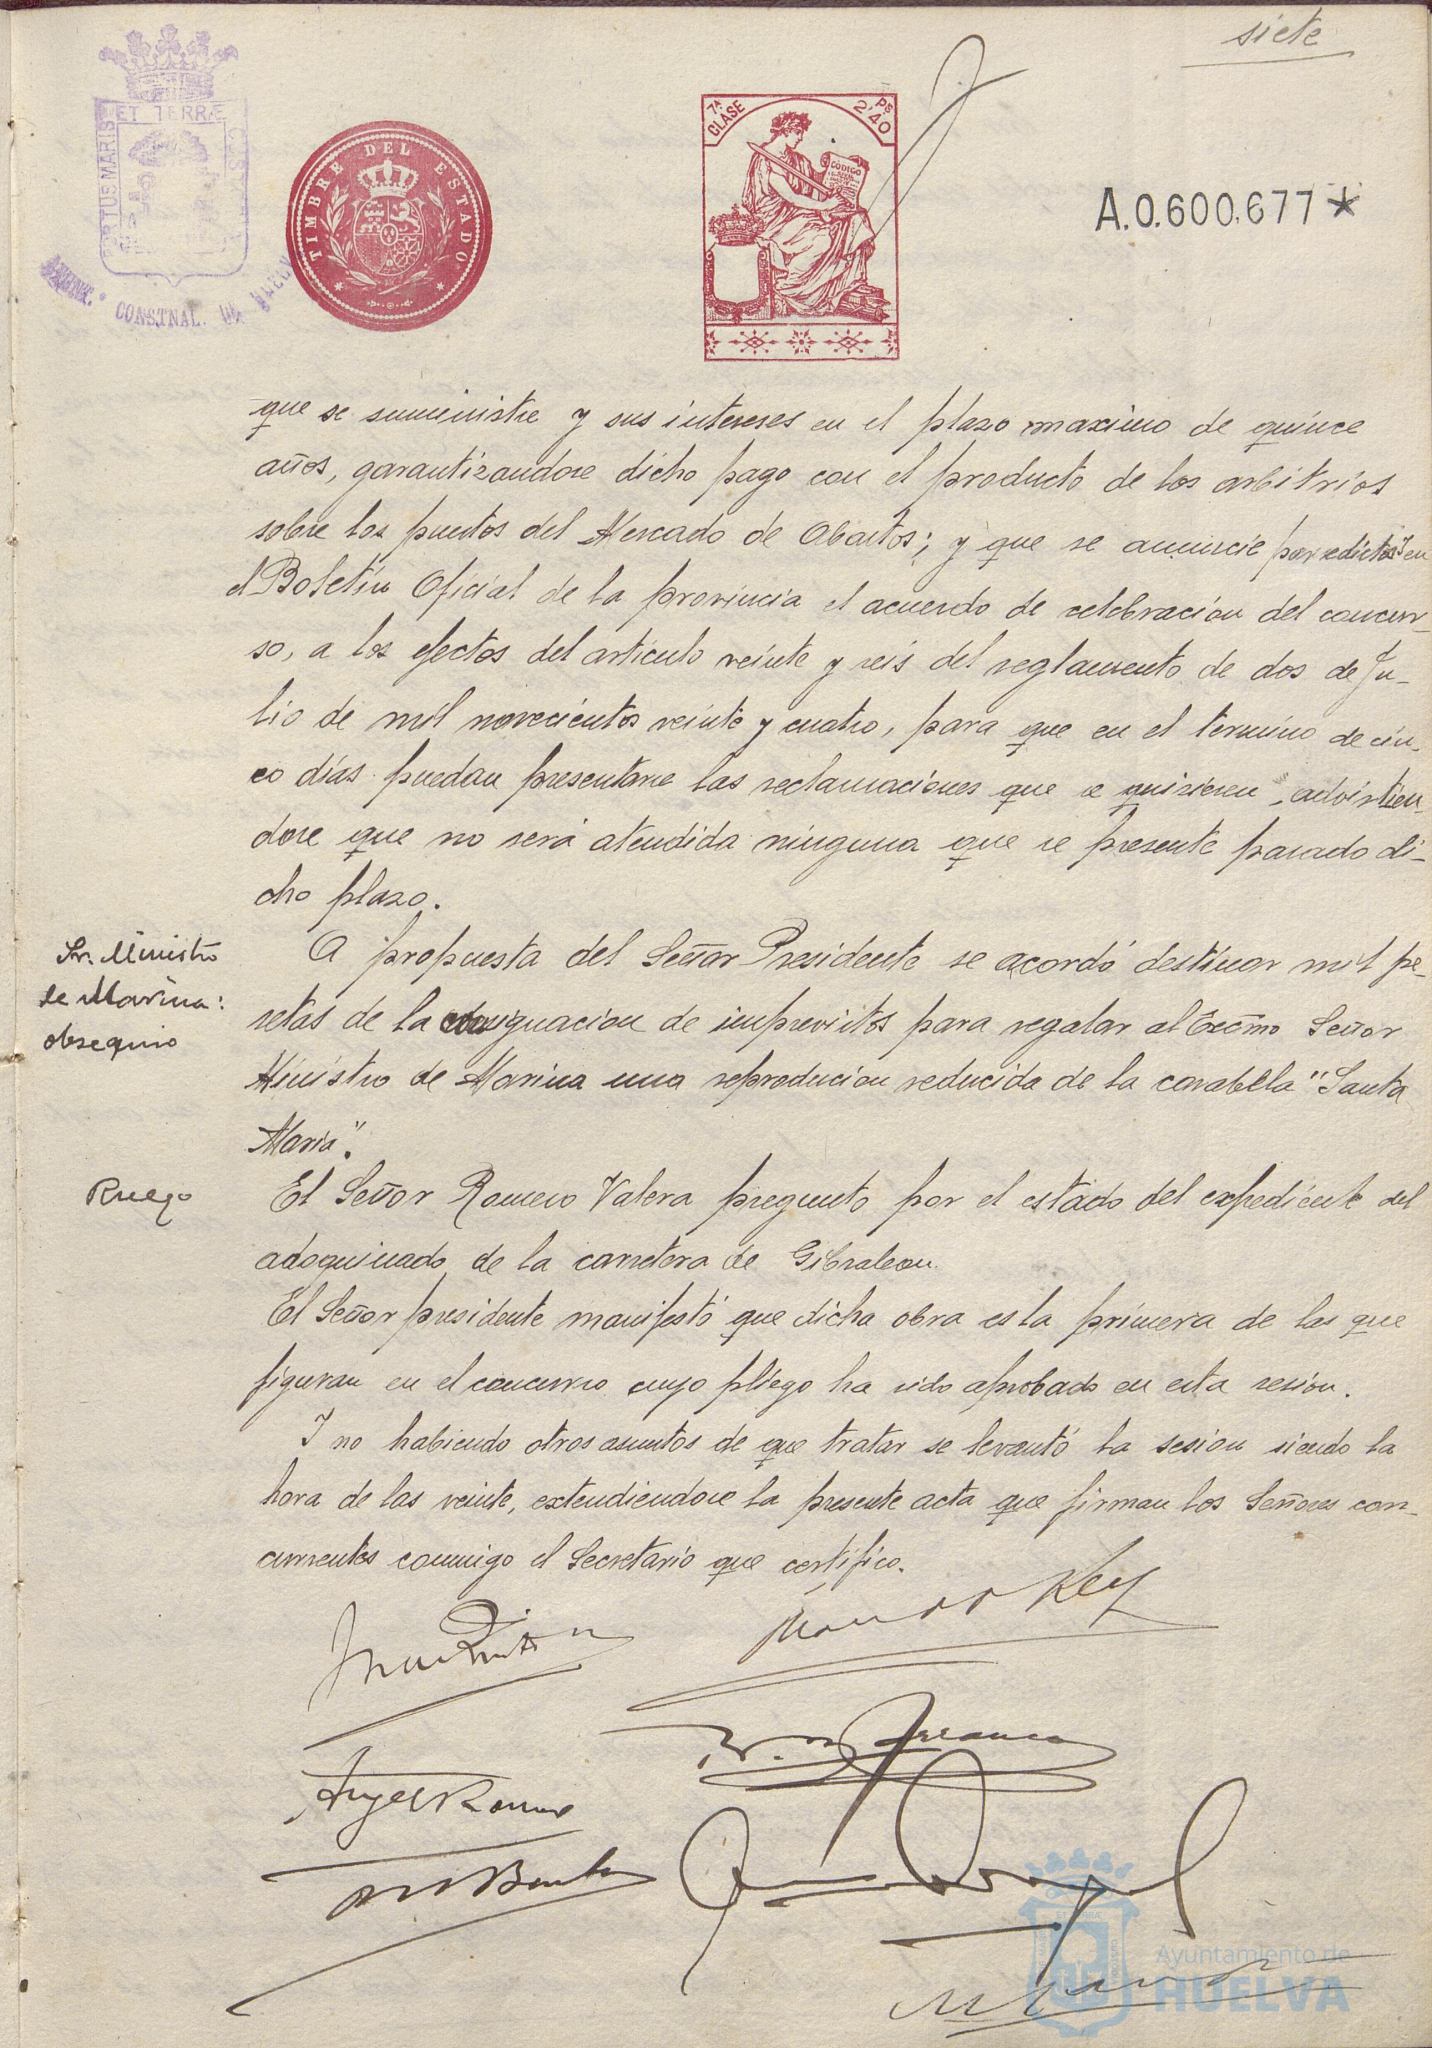 siete
PORTUS MARIS ET TERRÆ CUSTODIA
AYUNT. CONSTNAL. DE HUELVA
TIMBRE DEL ESTADO
7ª CLASE
2'40 Ps
CÓDIGO
A.0.600.677*
que se suministre y sus intereses en el plazo maximo de quince
años, garantizandose dicho pago con el producto de los arbitrios
sobre los puestos del Mercado de Abastos; y que se anuncie por edictos y en
el Boletín Oficial de la provincia el acuerdo de celebracion del concur-
so, a los efectos del articulo veinte y seis del reglamento de dos de Ju-
lio de mil novecientos veinte y cuatro, para que en el termino de cin-
co días puedan presentarse las reclamaciones que se quisieren, advirtien-
dose que no será atendida ninguna que se presente pasado di-
cho plazo.
Sr. Ministro
de Marina:
obsequio
A propuesta del Señor Presidente se acordó destinar mil pe-
setas de la consignacion de imprevistos para regalar al Excmo Señor
Ministro de Marina una reproducion reducida de la carabela "Santa
Maria".
Ruego
El Señor Romero Valera pregunto por el estado del expediente del
adoquinado de la carretera de Gibraleon.
El Señor presidente manifestó que dicha obra es la primera de las que
figuran en el concurso cuyo pliego ha sido aprobado en esta sesion.
Y no habiendo otros asuntos de que tratar se levantó la sesion siendo la
hora de las veinte, extendiendose la presente acta que firman los Señores con-
currentes conmigo el Secretario que certifico.
Angel Romero
Ayuntamiento de
HUELVA